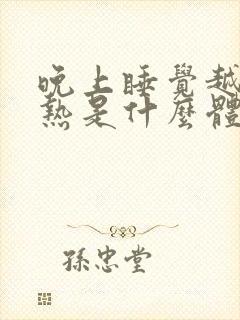 晚上睡覺越
熱是什麼體
孫忠堂